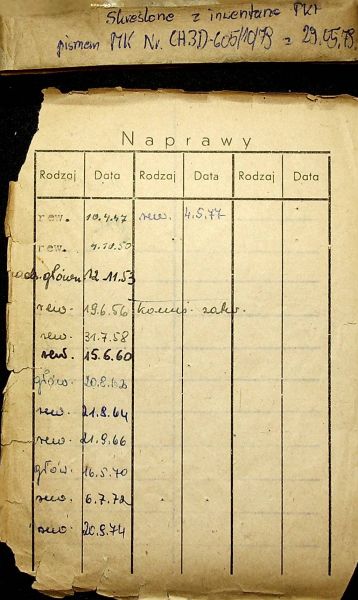 Skreślono z inwentarza PKP
pismem MK Nr. CH3D-605/10/79 z 29.05.79.
Naprawy
Rodzaj Data Rodzaj Data Rodzaj Data
rew. 10.4.47 rew. 4.5.77
rew. 4.10.50
główn. 12.11.53
rew. 19.6.56 komis. zakw.
rew. 31.7.58
rew. 15.6.60
głów. 20.8.62
rew. 21.8.64
rew. 21.9.66
głów. 16.5.70
rew. 6.7.72
rew. 20.9.74